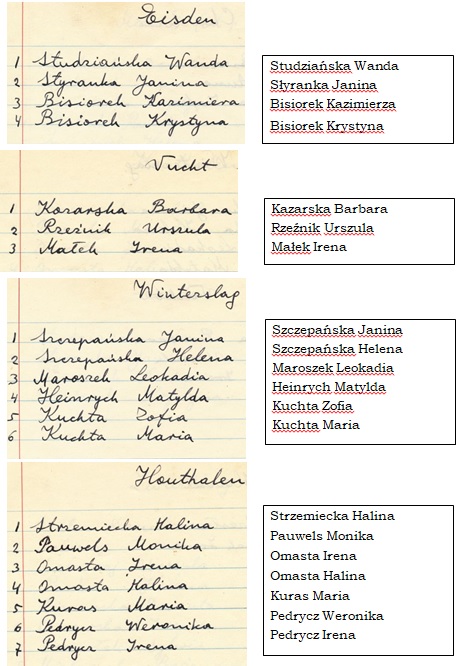 Eisden
1 Studziańska Wanda
2 Styranka Janina
3 Bisiorek Kazimiera
4 Bisiorek Krystyna
Studziańska Wanda
Słyranka Janina
Bisiorek Kazimierza
Bisiorek Krystyna
Vucht
1 Kozarska Barbara
2 Rzeźnik Urszula
3 Małek Irena
Kazarska Barbara
Rzeźnik Urszula
Małek Irena
Winterslag
1 Szczepańska Janina
2 Szczepańska Helena
3 Maroszek Leokadia
4 Heinrych Matylda
5 Kuchta Zofia
6 Kuchta Maria
Szczepańska Janina
Szczepańska Helena
Maroszek Leokadia
Heinrych Matylda
Kuchta Zofia
Kuchta Maria
Houthalen
1 Strzemiecka Halina
2 Pauwels Monika
3 Omasta Irena
4 Omasta Halina
5 Kuras Maria
6 Pedrycz Weronika
7 Pedrycz Irena
Strzemiecka Halina
Pauwels Monika
Omasta Irena
Omasta Halina
Kuras Maria
Pedrycz Weronika
Pedrycz Irena